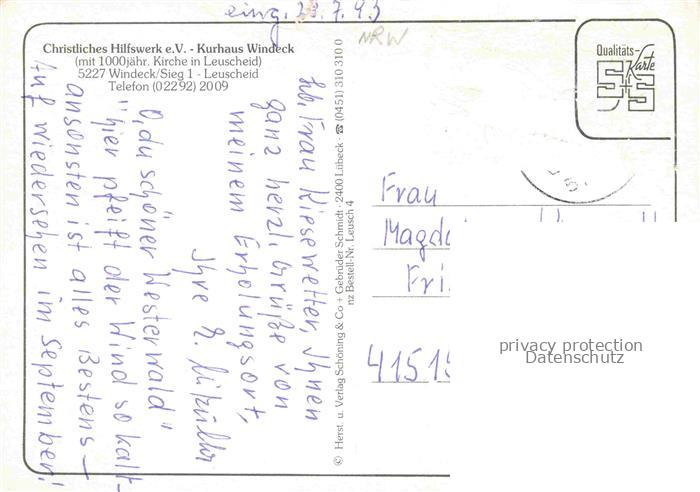 eing. 23.7.93
NRW
Christliches Hilfswerk e.V. - Kurhaus Windeck
(mit 1000jähr. Kirche in Leuscheid)
5227 Windeck/Sieg 1 - Leuscheid
Telefon (0 22 92) 20 09
Lb. Frau Kiesewetter, Ihnen
ganz herzl. Grüße von
meinem Erholungsort,
Ihre
O, du schöner Westerwald"
"hier pfeift der Wind so kalt-
ansonsten ist alles Bestens -
Auf Wiedersehen im September!
© Herst. u. Verlag Schöning & Co + Gebrüder Schmidt · 2400 Lübeck · ☎ (0451) 310 310 0
nz Bestell-Nr. Leusch 4
Qualitäts-
Karte
S+S
Frau
Magda
Fri
41515
privacy protection
Datenschutz